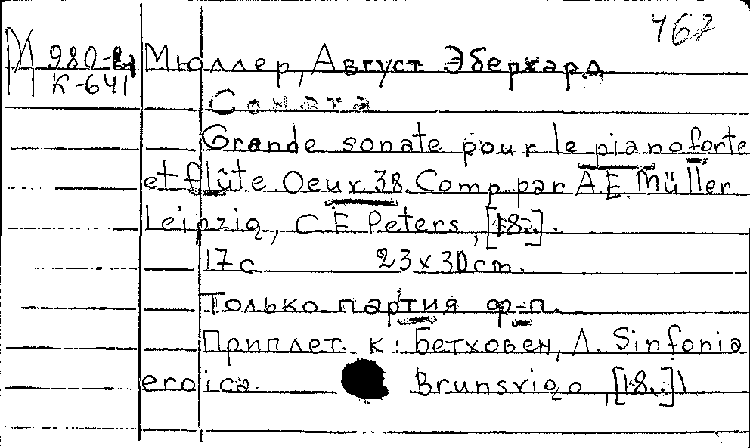 762
М 980-4 Мюллер, Август Эберхард
К-641
Соната
Grande sonate pour le pianoforte
et flûte Oeux 38 Comp par A.E. Müller
Leipzig, C.F. Peters, [18..].
17 с 23x30 cm.
Только партия ф-п.
Приплет. к: Бетховен, Л. Sinfonia
eroica. Brunsvigo, [18..]